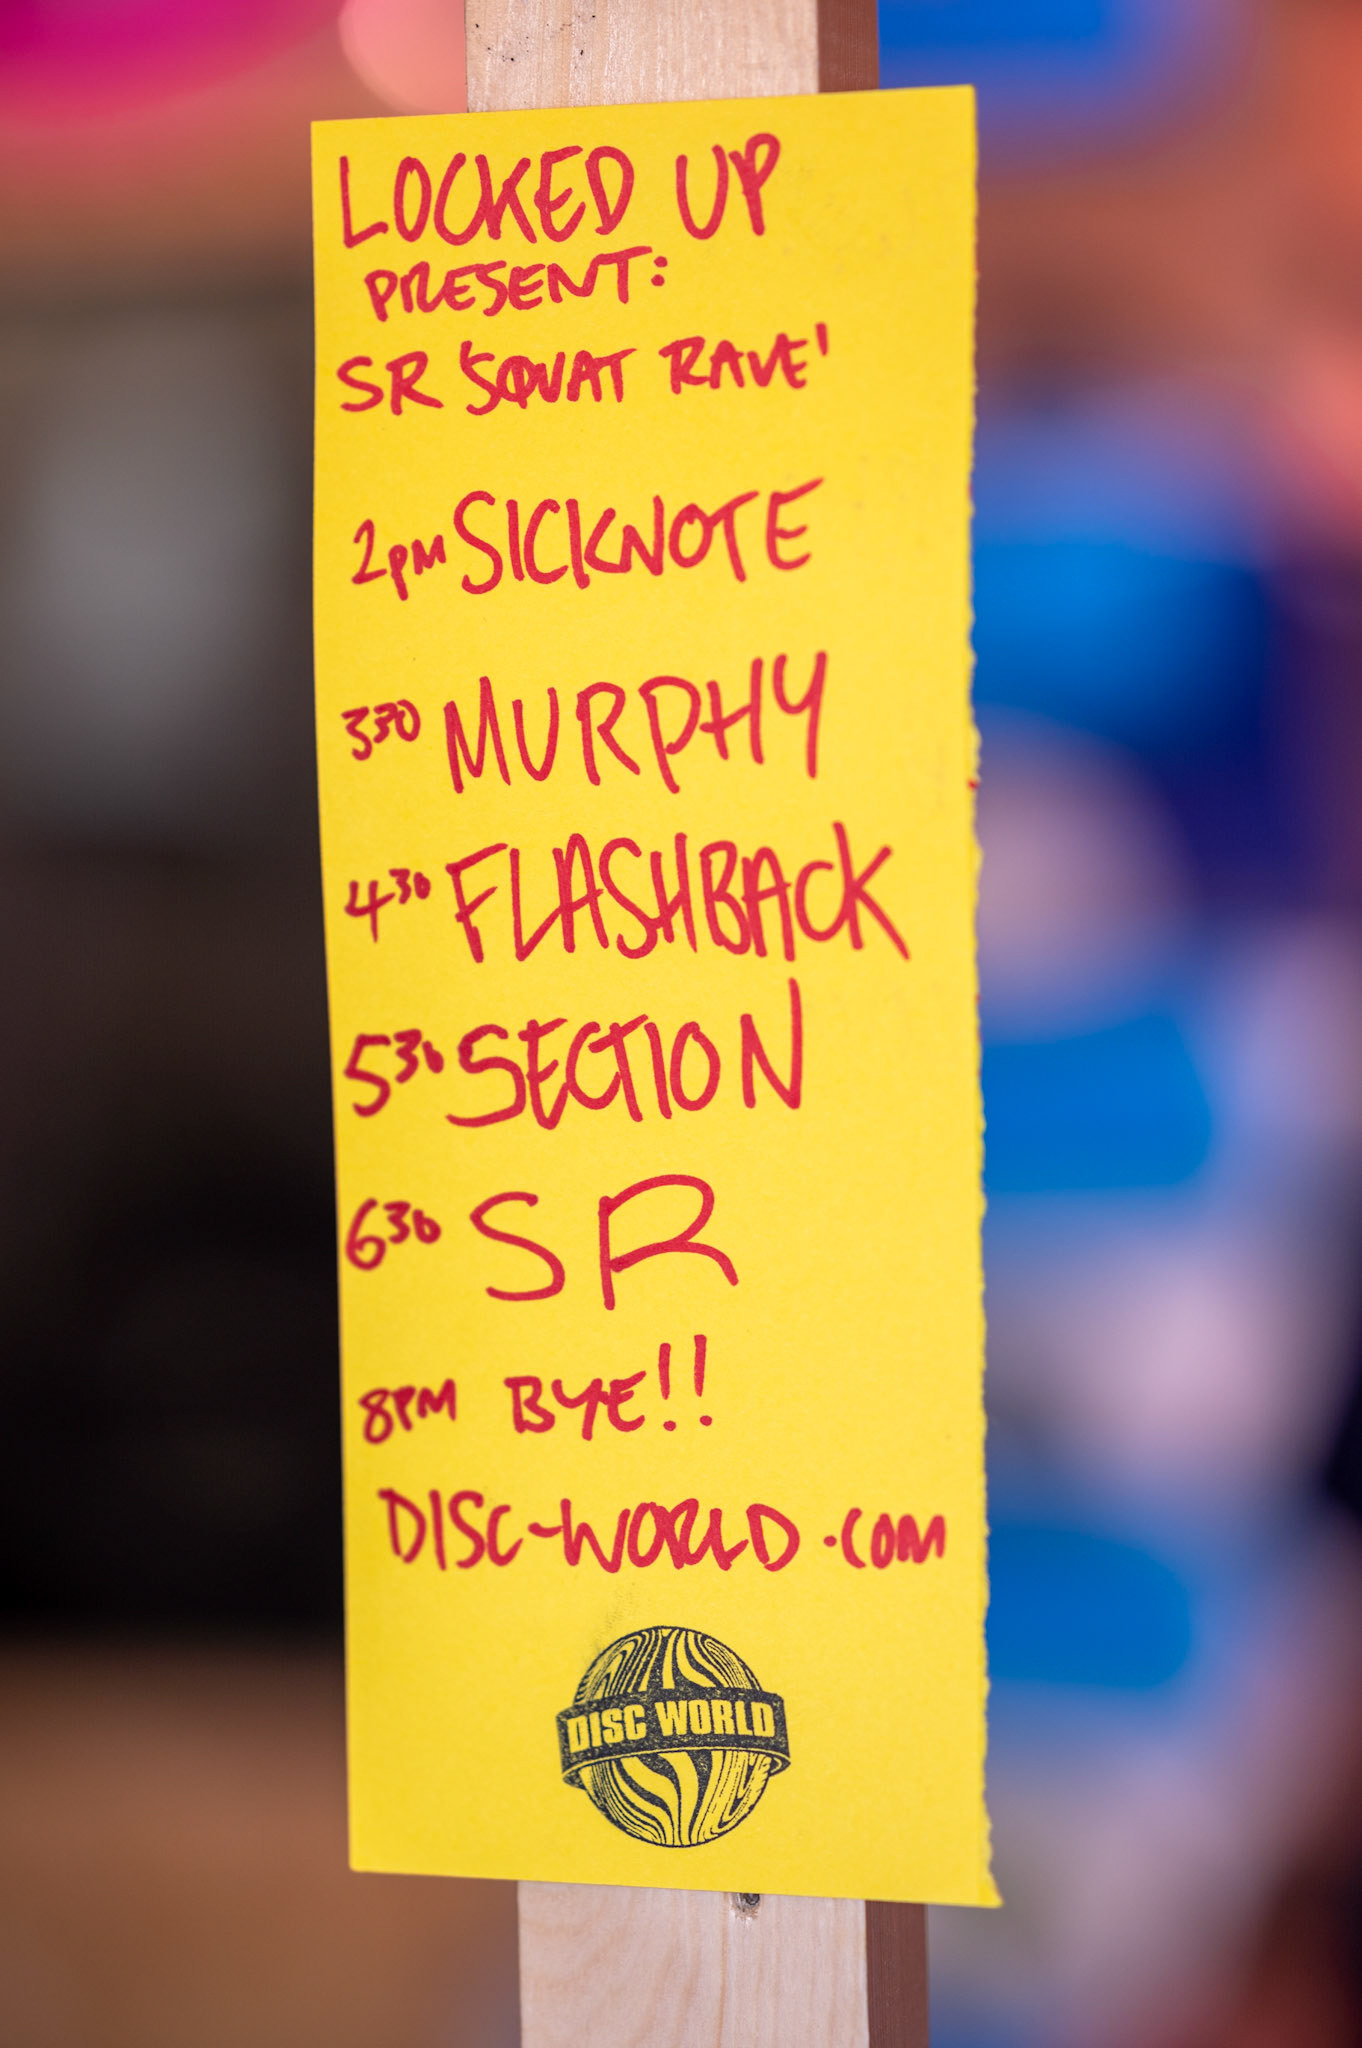 LOCKED UP
PRESENT:
SR 'SQUAT RAVE'
2PM SICKNOTE
330 MURPHY
430 FLASHBACK
530 SECTION
630 SR
8PM BYE!!
DISC-WORLD.COM
DISC WORLD